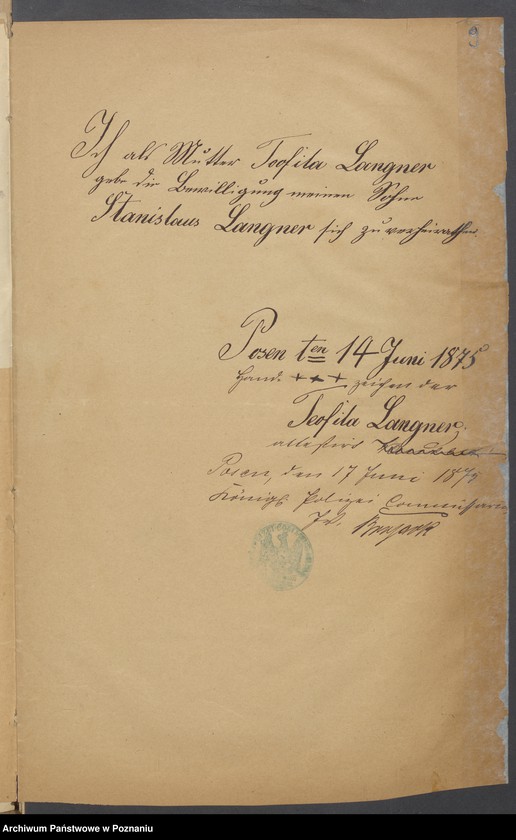 9
Ich als Mutter Teofila Langner
gebe die Bewilligung meinen Sohne
Stanislaus Langner sich zu verheirathen.
Posen ten 14 Juni 1875
Hand. +++ zeichen der
Teofila Langner.
attestirt
Posen, den 17 Juni 1875
Königl. Polizei Commissariat
Archiwum Państwowe w Poznaniu